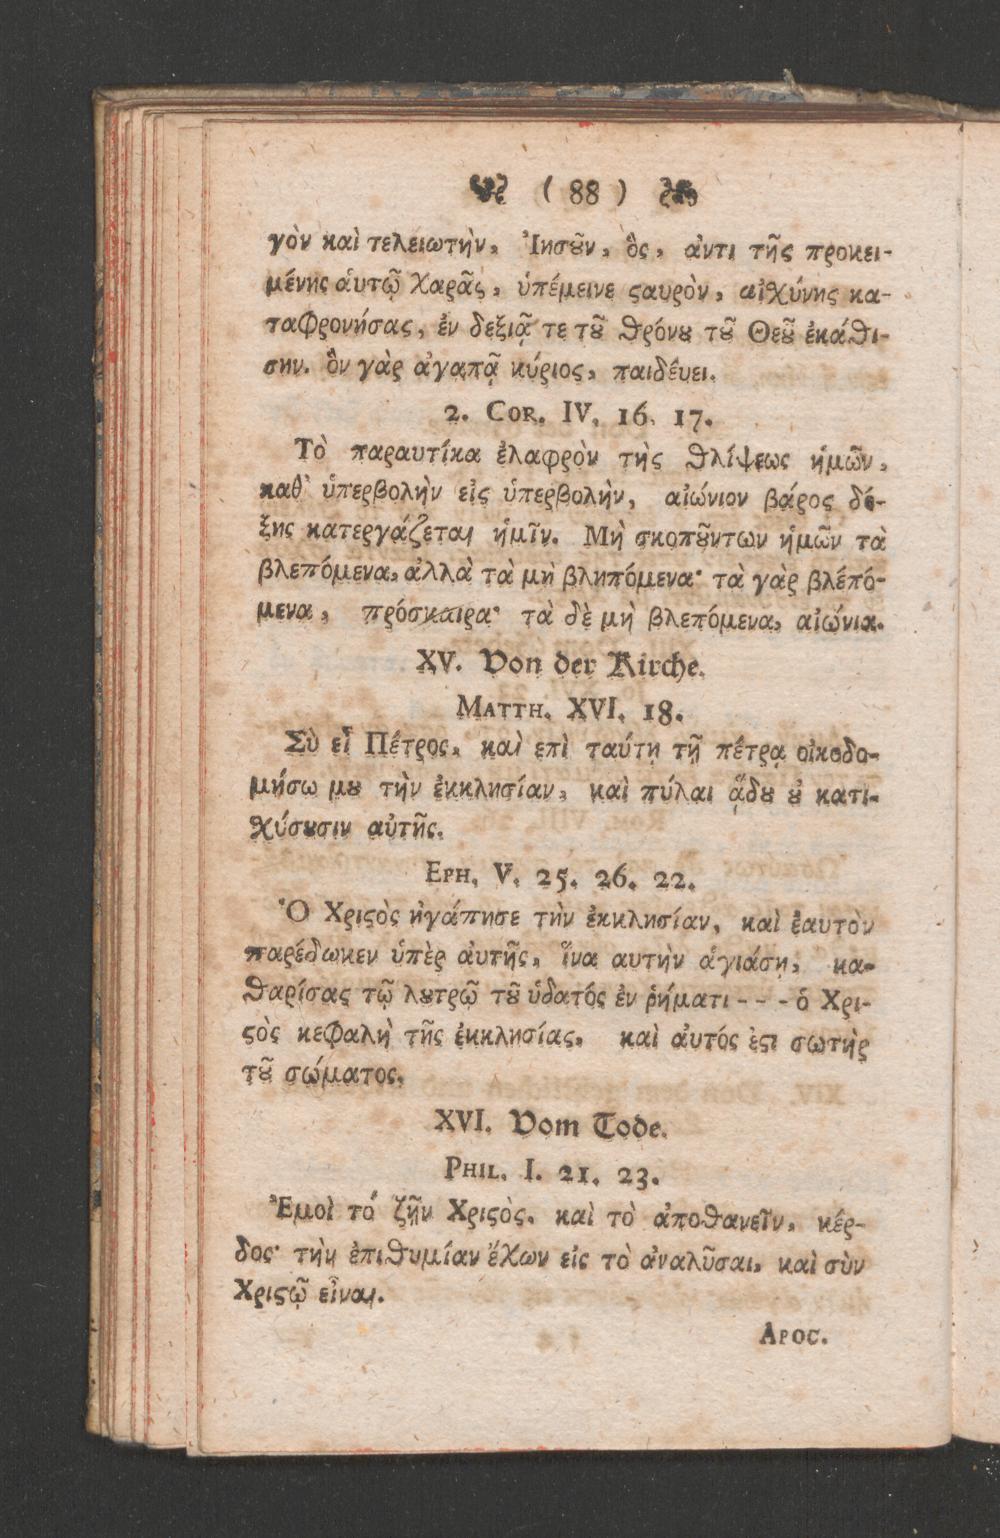 ( 88 )
γὸν καὶ τελειωτὴν, Ἰησȣ͂ν, ὃς, ἀντι τῆς προκει-
μένης ἁυτῷ χαρᾶς, ὑπέμεινε ϛαυρὸν, αἰχύνης κα-
ταφρονήσας, ἐν δεξιᾷ τε τȣ͂ θρόνȣ τȣ͂ Θεȣ͂ ἐκάθι-
σην. ὃν γὰρ ἀγαπᾷ κύριος, παιδέυει.
2. COR. IV. 16. 17.
Τὸ παραυτίκα ἐλαφρὸν τὴς θλίψεως ἡμῶν,
καθ᾽ ὑπερβολὴν εἰς ὑπερβολὴν, αἰώνιον βάρος δό-
ξης κατεργάζεται ἡμῖν. Μὴ σκοπȣ͂ντων ἡμῶν τὰ
βλεπόμενα, ἀλλὰ τὰ μὴ βληπόμενα· τὰ γὰρ βλέπό-
μενα, πρόσκαιρα· τὰ δὲ μὴ βλεπόμενα, αἰώνια.
XV. Von der Kirche.
MATTH. XVI. 18.
Σὺ εἶ Πέτρος, καὶ επὶ ταύτῃ τῇ πέτρᾳ οἰκοδο-
μήσω μȣ τὴν ἐκκλησίαν, καὶ πύλαι ᾅδȣ ȣ̓ κατι-
χύσȣσιν αὐτῆς.
EPH. V. 25. 26. 22.
Ὁ Χριϛὸς ἠγάπησε τὴν ἐκκλησίαν, καὶ ἑαυτὸν
παρέδωκεν ὑπὲρ ἀυτῆς, ἵνα αυτὴν ἁγιάσῃ, κα-
θαρίσας τῷ λȣτρῷ τȣ͂ ὑδατός ἐν ῥήματι - - - ὁ Χρι-
ϛὸς κεφαλὴ τῆς ἐκκλησίας, καὶ ἀυτός ἐϛι σωτὴρ
τȣ͂ σώματος.
XVI. Vom Tode.
PHIL. I. 21. 23.
Ἐμοὶ τό ζῆν Χριϛὸς, καὶ τὸ ἀποθανεῖν, κέρ-
δος· τὴν ἐπιθυμίαν ἔχων εἰς τὸ ἀναλῦσαι, καὶ σὺν
Χριϛῷ εἶναι.
APOC.